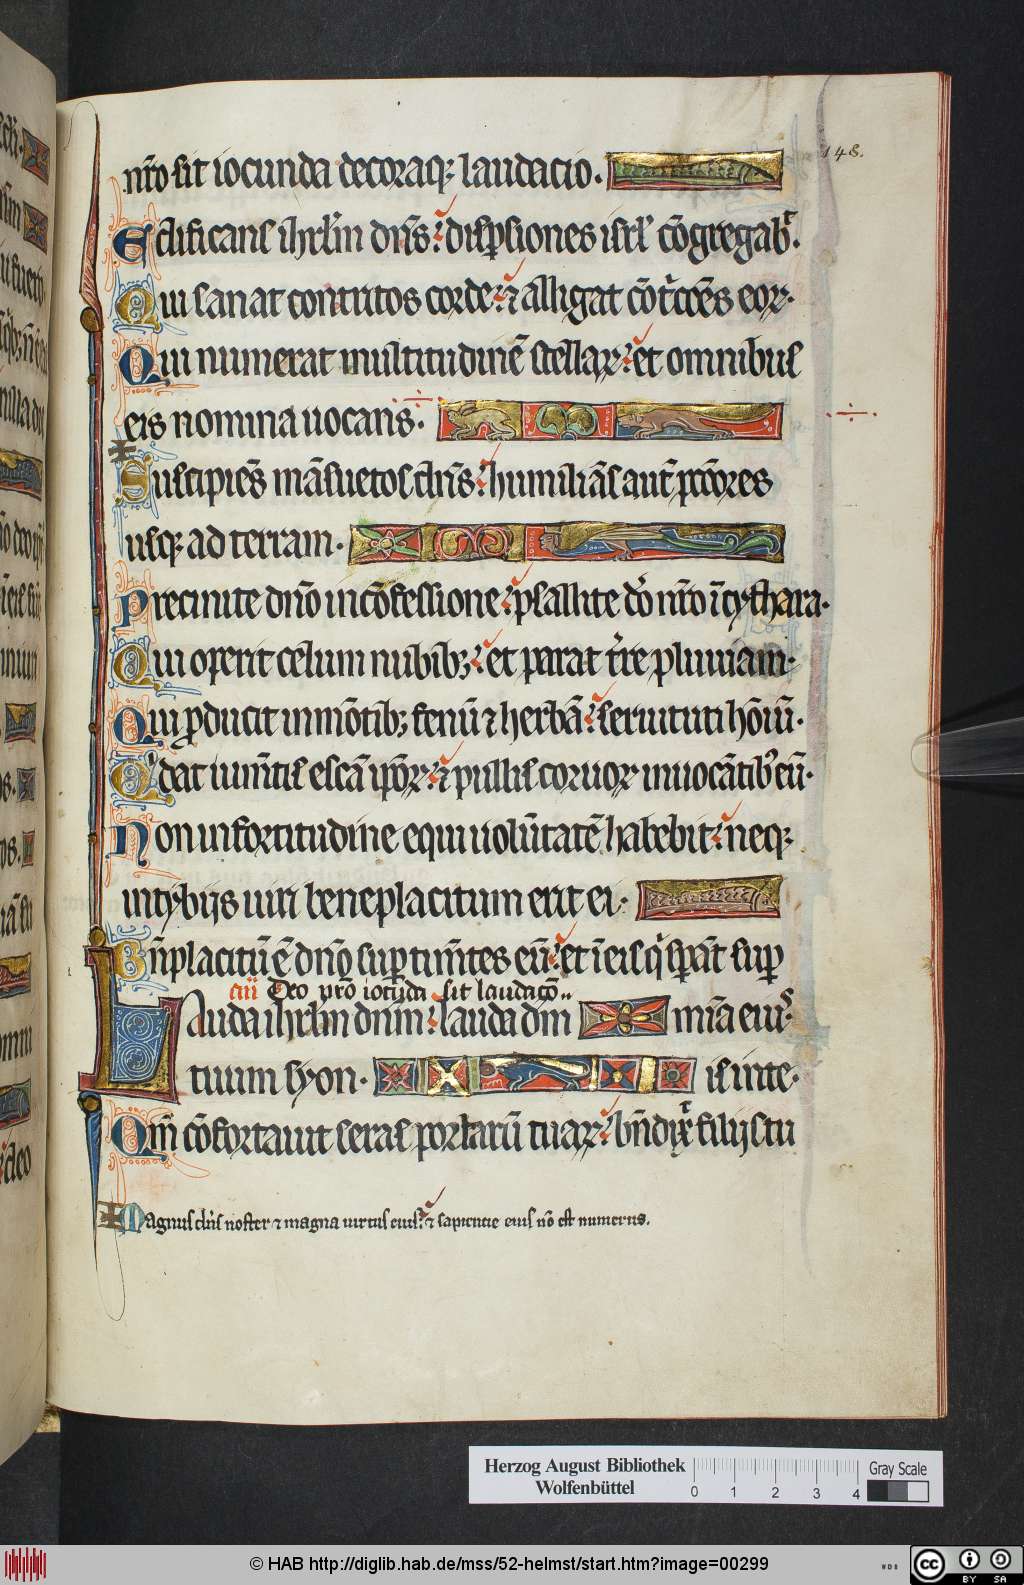 148.
nr̄o sit iocunda decoraq; laudacio.
Edificans ih̄rlm̄ dn̄s: disp̄siones isrl̄ cōgregabᷣ.
Qui sanat contritos corde: ⁊ alligat cōtⁱcōes eoꝝ.
Qui numerat multitudinē stellaꝝ: et omnibus
eis nomina uocans.
Suscipiēs māsuetos dn̄s: humiliās aut̄ pc̄cōres
usq; ad terram.
Precinite dn̄o in cōfessione: psallite dō nr̄o ī cythara.
Qui operit celum nubib;: et parat tr̄re pluuiam.
Qui ꝓducit in mōtib; fenū ⁊ herbā: seruituti hōiū.
Qⁱ dat iumt̄is escā ipōꝝ: ⁊ pullis coruoꝝ inuocātib; eū.
Non in fortitudine equi uolūtatē habebit: neq;
in tybijs uiri beneplacitum erit ei.
Bn̄placitū ē dn̄o suꝑ timētes eū: et ī eis qⁱ sꝑāt suꝑ
Deo nr̄o iocūda sit laudacō
Lauda ih̄rlm̄ dn̄m: lauda dm̄ mīa eiuˢ.
tuum syon. is inte.
Qm̄ cōfortauit seras portarū tuaꝝ: bn̄dixᷣ filijs tu
Magnus dn̄s noster ⁊ magna uirtus eius: ⁊ sapientie eius nō est numerus.
Herzog August Bibliothek
Wolfenbüttel
0 1 2 3 4
Gray Scale
© HAB http://diglib.hab.de/mss/52-helmst/start.htm?image=00299
WDB
cc BY SA